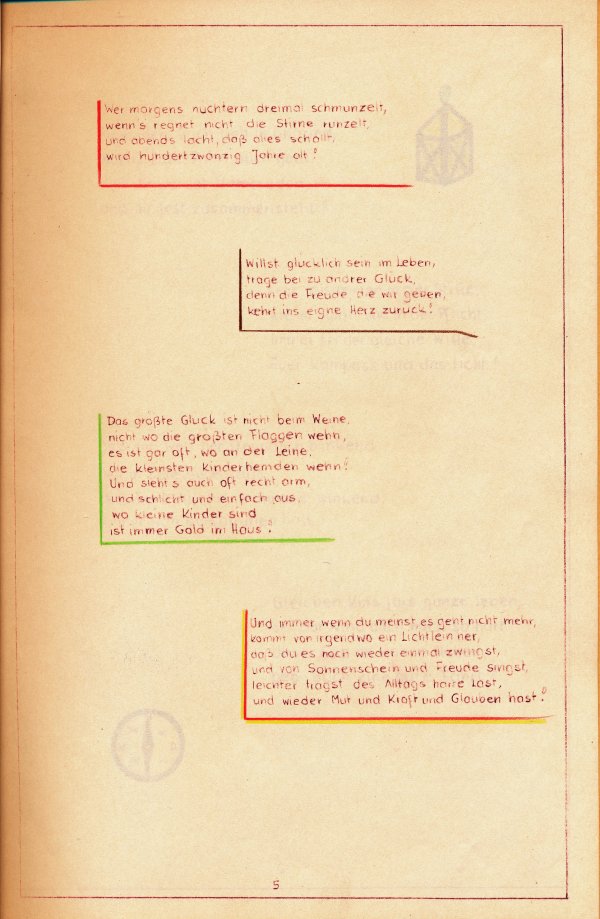 Wer morgens nüchtern dreimal schmunzelt,
wenn's regnet nicht die Stirne runzelt,
und abends lacht, daß alles schallt,
wird hundertzwanzig Jahre alt!
Willst glücklich sein im Leben,
trage bei zu andrer Glück,
denn die Freude, die wir geben,
kehrt ins eigne Herz zurück!
Das größte Glück ist nicht beim Weine,
nicht wo die größten Flaggen wehn,
es ist gar oft, wo an der Leine,
die kleinsten Kinderhemden wehn!
Und sieht's auch oft recht arm,
und schlicht und einfach aus,
wo kleine Kinder sind
ist immer Gold im Haus!
Und immer, wenn du meinst, es geht nicht mehr,
kommt von irgendwo ein Lichtlein her,
daß du es noch wieder einmal zwingst,
und von Sonnenschein und Freude singst,
leichter trägst des Alltags harte Last,
und wieder Mut und Kraft und Glauben hast!
5